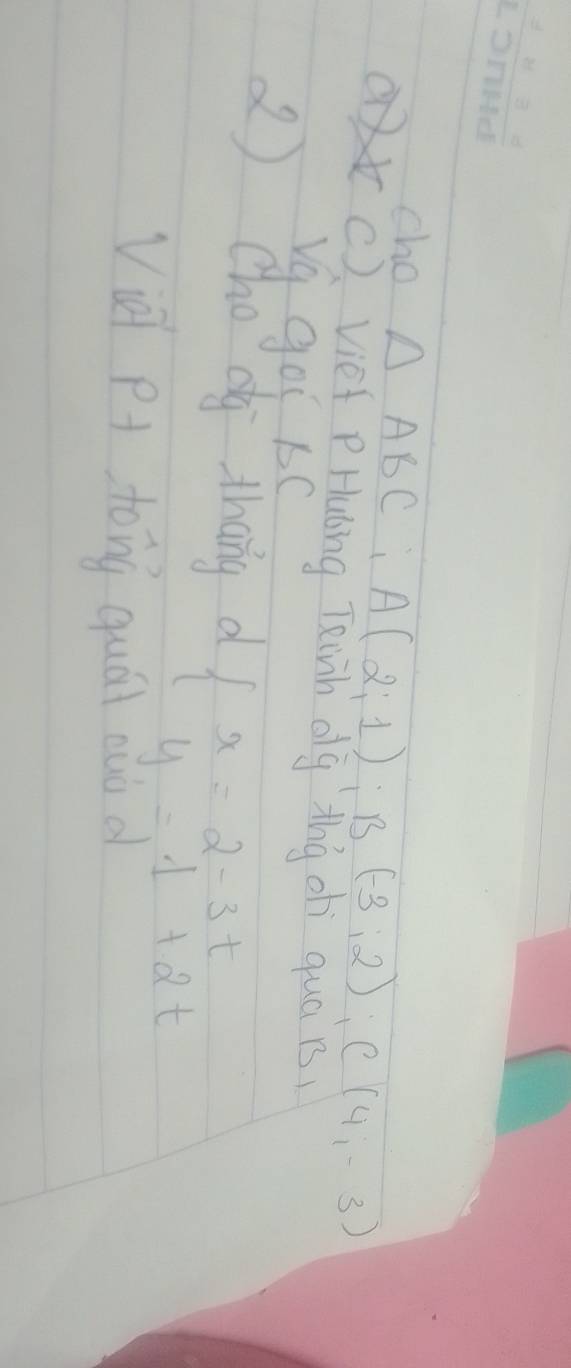 PHUC
cho Δ ABC; A(2;1); B(-3;2); C(4;-3)
c) Viết PHương Trình đg thg đi qua B,
và gọi BC
2) Cho đg thẳng d { x = 2 - 3t
y = 1 + 2t
Viết Pt tổng quát của d